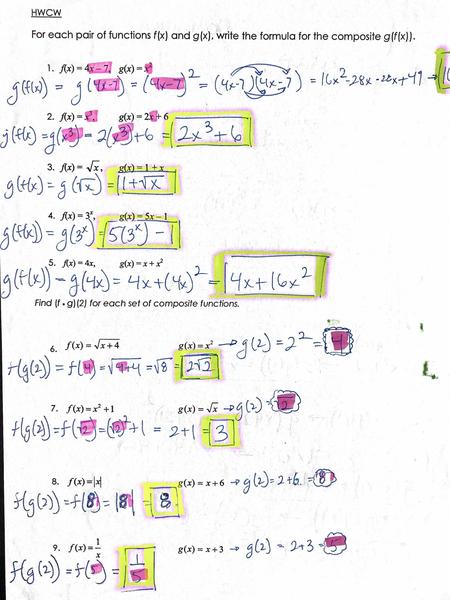 HWCW
For each pair of functions f(x) and g(x), write the formula for the composite g(f(x)).
1. f(x) = 4x − 7, g(x) = x²
g(f(x)) = g(4x-7) = (4x-7)² = (4x-7)(4x-7) = 16x²-28x-28x+49 →
2. f(x) = x³, g(x) = 2x + 6
g(f(x) = g(x³) = 2(x³)+6 = 2x³+6
3. f(x) = √x, g(x) = 1 + x
g(f(x) = g(√x) = 1+√x
4. f(x) = 3ˣ, g(x) = 5x − 1
g(f(x)) = g(3ˣ) = 5(3ˣ) - 1
5. f(x) = 4x, g(x) = x + x²
g(f(x)) - g(4x) = 4x+(4x)² = 4x+16x²
Find (f ∘ g)(2) for each set of composite functions.
6. f(x) = √(x + 4) g(x) = x² → g(2) = 2² = 4
f(g(2)) = f(4) = √(4+4) = √8 = 2√2
7. f(x) = x² + 1 g(x) = √x → g(2) = √2
f(g(2)) = f(√2) = (√2)² + 1 = 2+1 = 3
8. f(x) = |x| g(x) = x + 6 → g(2) = 2+6 = 8
f(g(2)) = f(8) = |8| = 8
9. f(x) = 1/x g(x) = x + 3 → g(2) = 2+3 = 5
f(g(2)) = f(5) = 1/5